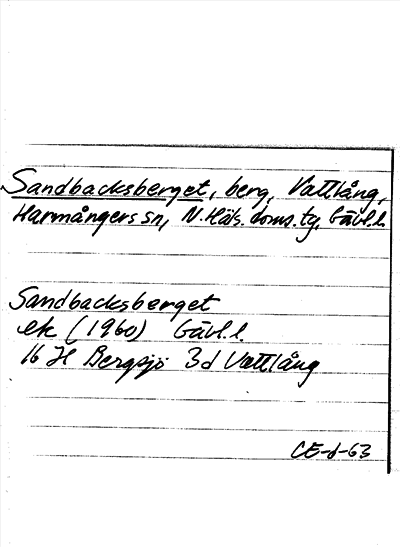 Sandbacksberget, berg, Vattlång,
Harmångers sn, N. Häls. doms. tg, Gävl.l.
Sandbacksberget
ek (1960) Gävl.l.
16 H Bergsjö 3d Vattlång
CE-d-63